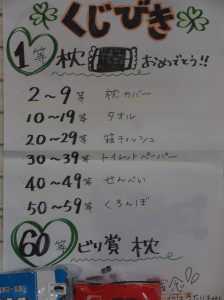 くじびき
1等 枕 おめでとう!!
2〜9等 枕カバー
10〜19等 タオル
20〜29等 箱ティッシュ
30〜39等 トイレットペーパー
40〜49等 せんべい
50〜59等 くろんぼ
60等 ビリ賞 枕